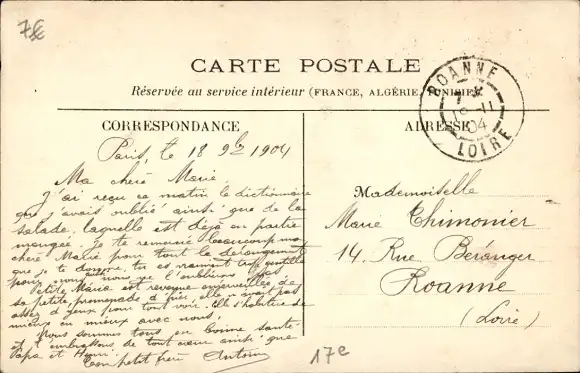 7€
CARTE POSTALE
Réservée au service intérieur (FRANCE, ALGÉRIE, TUNISIE)
ROANNE
18 -11
04
LOIRE
CORRESPONDANCE
ADRESSE
Paris, le 18 9bre 1904
Ma chère Marie
J'ai reçu ce matin le dictionnaire
que j'avais oublié ainsi que de la
salade, laquelle est déjà en partie
mangée. Je te remercie beaucoup ma
chère Marie pour tout le dérangement
que je te donne, tu es vraiment trop gentille
pour nous aussi nous ne l'oublions pas
petite Maria est revenue émerveillée de
sa petite promenade d'hier, elle n'avait pas
assez d'yeux pour tout voir. Elle s'habitue de
mieux en mieux avec nous.
Nous sommes tous en bonne santé
et t'embrassons de tout cœur ainsi que
Papa et Henri.
Ton petit frère Antoine
Mademoiselle
Marie Thimonier
14, Rue Béranger
Roanne
(Loire)
17e